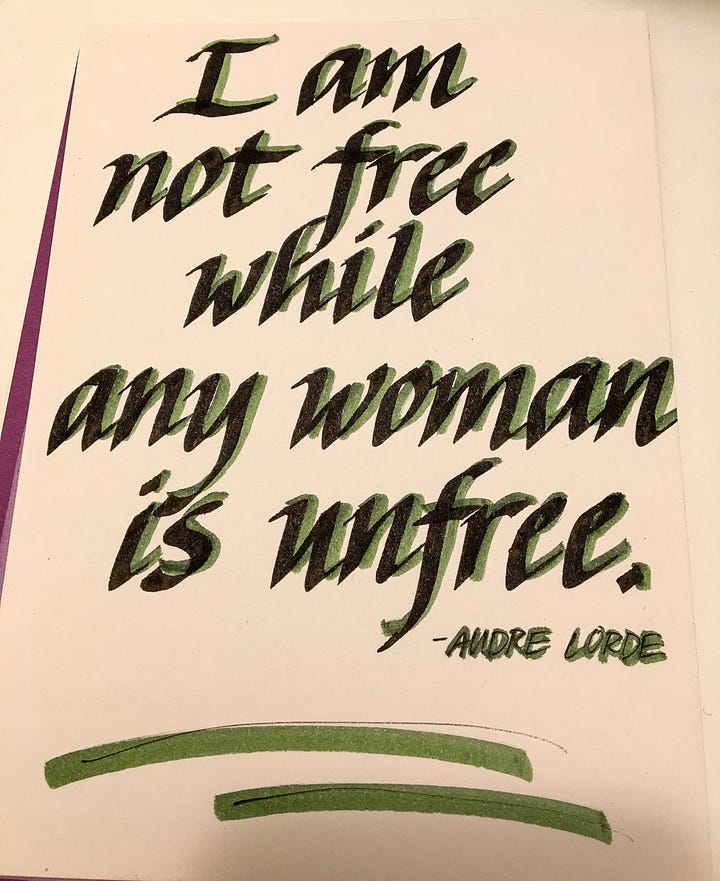 I am
not free
while
any woman
is unfree.
-AUDRE LORDE